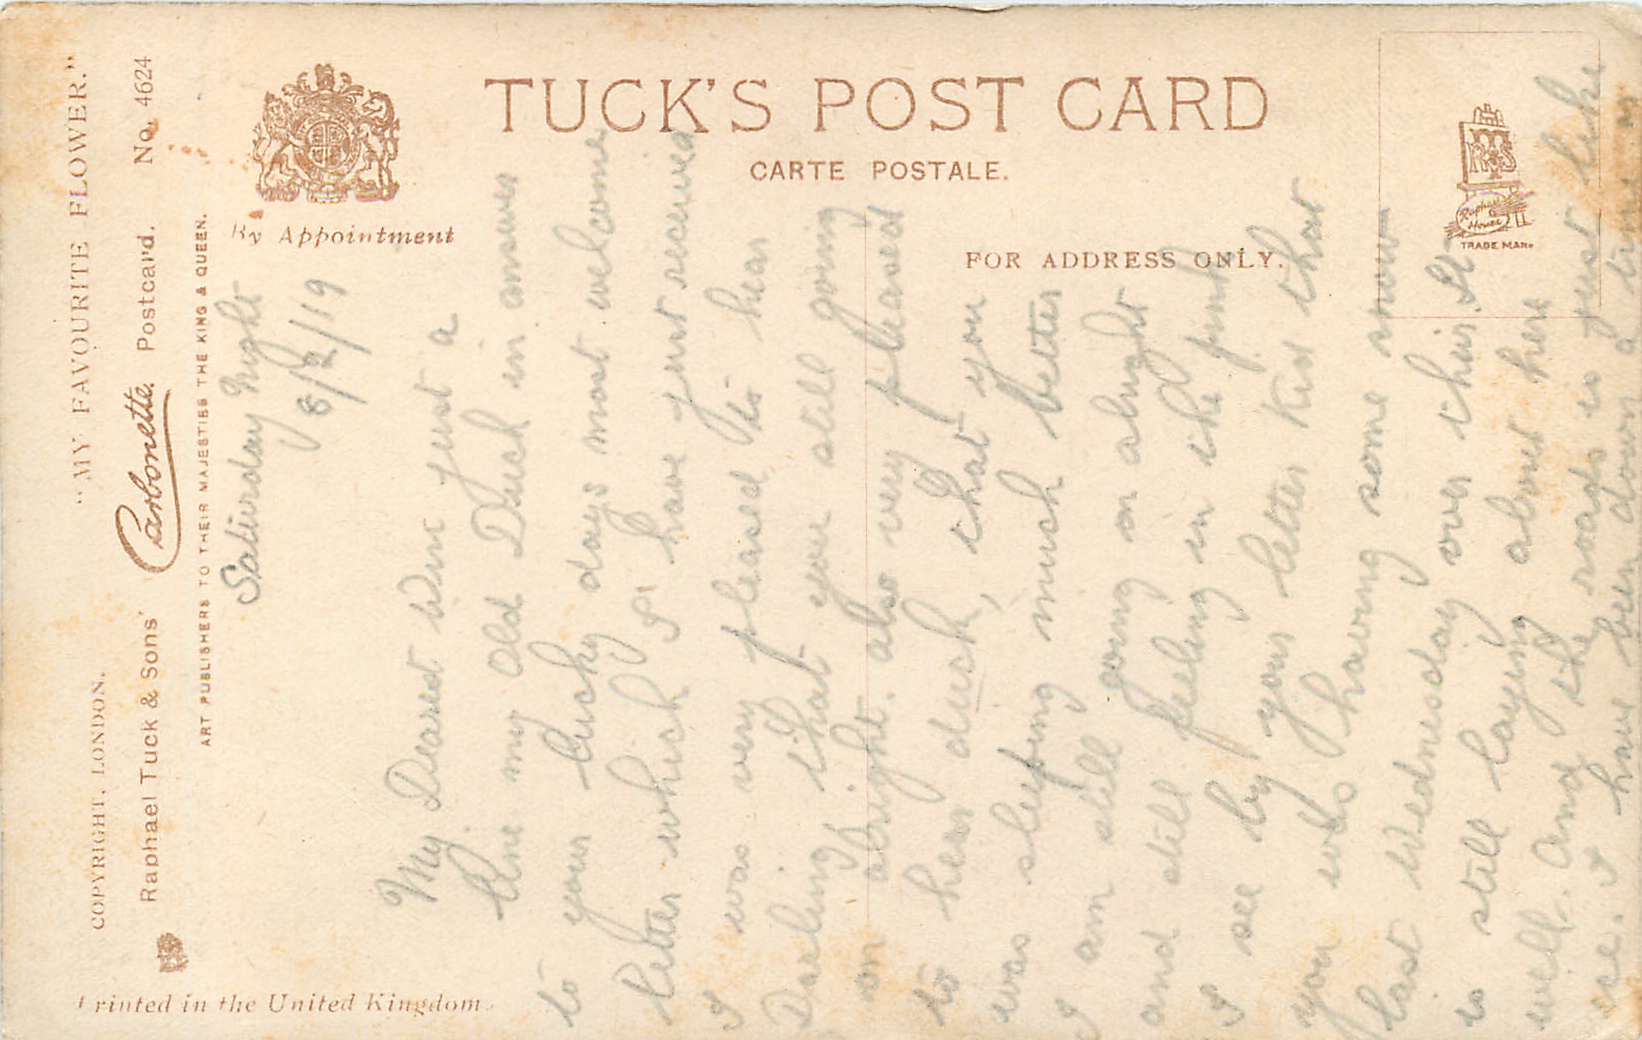 "MY FAVOURITE FLOWER."
COPYRIGHT, LONDON.
Raphael Tuck & Sons' Carbonette Postcard. No. 4624
ART PUBLISHERS TO THEIR MAJESTIES THE KING & QUEEN.
By Appointment
TUCK'S POST CARD
CARTE POSTALE.
FOR ADDRESS ONLY.
RTS
Raphael House
TRADE MARK
Printed in the United Kingdom.
Saturday Night
8/2/19
My Dearest Win just a
line my Old Duck in answer
to your lucky days most welcome
letter which I have just received
I was very pleased to hear
Darling that your still going
on alright. also very pleased
to hear duck, that you
was sleeping much better
I am still going on alright
and still feeling in the pink
I see by your letter Kid that
you was having some snow
last Wednesday over their. It
is still laying about here
well. And the roads is just like
ice. I have been down a time or